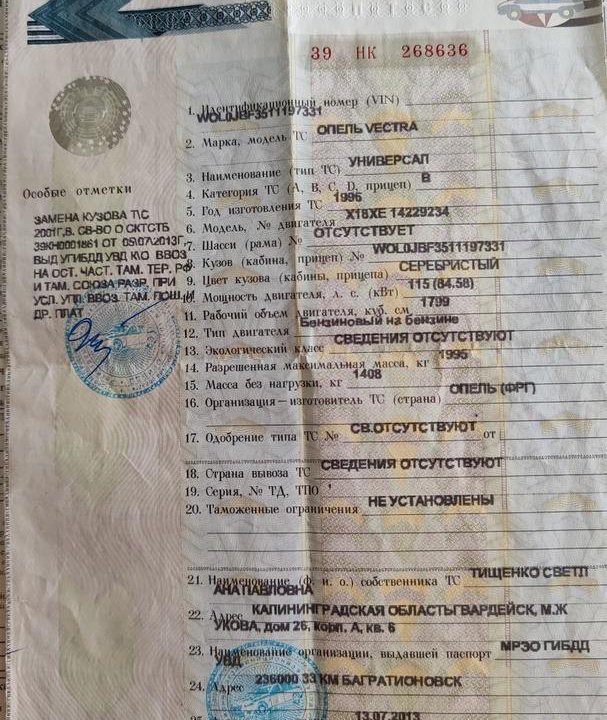 39 НК 268636
1. Идентификационный номер (VIN)
WOL0JBF3511197331
2. Марка, модель ТС ОПЕЛЬ VECTRA
3. Наименование (тип ТС) УНИВЕРСАЛ
4. Категория ТС (A, B, C, D, прицеп) B
5. Год изготовления ТС 1996
6. Модель, № двигателя X18XE 14229234
7. Шасси (рама) № ОТСУТСТВУЕТ
8. Кузов (кабина, прицеп) № WOL0JBF3511197331
9. Цвет кузова (кабины, прицепа) СЕРЕБРИСТЫЙ
10. Мощность двигателя, л. с. (кВт) 115 (84.58)
11. Рабочий объем двигателя, куб. см 1799
12. Тип двигателя Бензиновый на бензине
13. Экологический класс СВЕДЕНИЯ ОТСУТСТВУЮТ
14. Разрешенная максимальная масса, кг 1995
15. Масса без нагрузки, кг 1408
16. Организация – изготовитель ТС (страна) ОПЕЛЬ (ФРГ)
17. Одобрение типа ТС № СВ.ОТСУТСТВУЮТ от
18. Страна вывоза ТС СВЕДЕНИЯ ОТСУТСТВУЮТ
19. Серия, № ТД, ТПО
20. Таможенные ограничения НЕ УСТАНОВЛЕНЫ
21. Наименование (ф. и. о.) собственника ТС ТИЩЕНКО СВЕТЛ
АНА ПАВЛОВНА
22. Адрес КАЛИНИНГРАДСКАЯ ОБЛАСТЬ ГВАРДЕЙСК, М.Ж
УКОВА, дом 26, корп. А, кв. 6
23. Наименование организации, выдавшей паспорт МРЭО ГИБДД
УВД
24. Адрес 236000 33 КМ БАГРАТИОНОВСК
13.07.2013
Особые отметки
ЗАМЕНА КУЗОВА Т\С
2001Г,В. СВ-ВО О СКТСТБ
39КН0001861 ОТ 05\07\2013Г,
ВЫД УГИБДД УВД К\О ВВОЗ
НА ОСТ. ЧАСТ. ТАМ. ТЕР. РФ
И ТАМ. СОЮЗА РАЗР. ПРИ
УСЛ. УПЛ. ВВОЗ. ТАМ. ПОШ. И
ДР. ПЛАТ